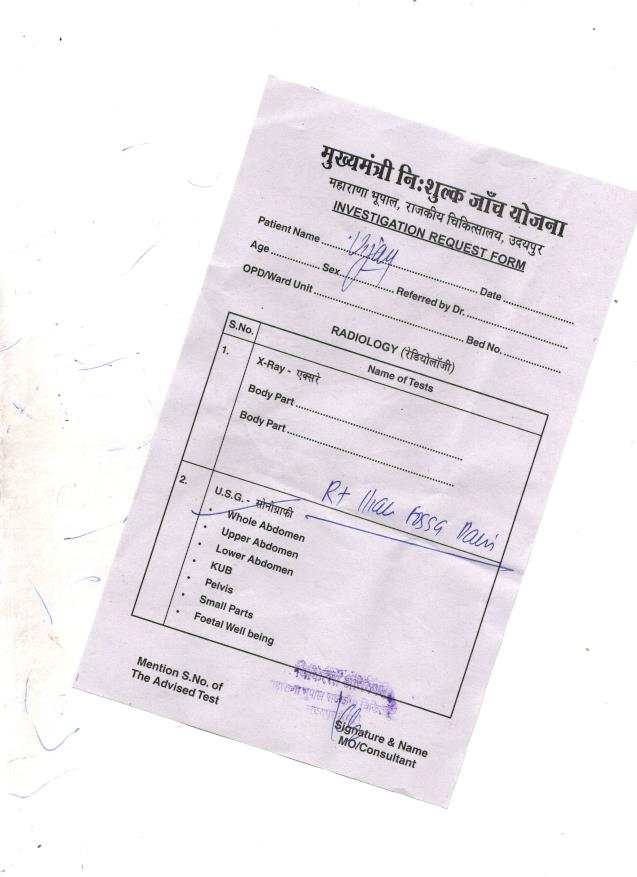 मुख्यमंत्री नि:शुल्क जाँच योजना
महाराणा भूपाल, राजकीय चिकित्सालय, उदयपुर
INVESTIGATION REQUEST FORM
Patient Name ........ Vijay ........ Date ................
Age ................ Sex ................ Referred by Dr. ................
OPD/Ward Unit ................ Bed No. ................
RADIOLOGY (रेडियोलॉजी)
S.No. Name of Tests
1. X-Ray - एक्सरे
Body Part ................
Body Part ................
2. U.S.G. - सोनोग्राफी Rt Iliac Fossa Pain
• Whole Abdomen
• Upper Abdomen
• Lower Abdomen
• KUB
• Pelvis
• Small Parts
• Foetal Well being
Mention S.No. of
The Advised Test
महाराणा भूपाल
Signature & Name
MO/Consultant